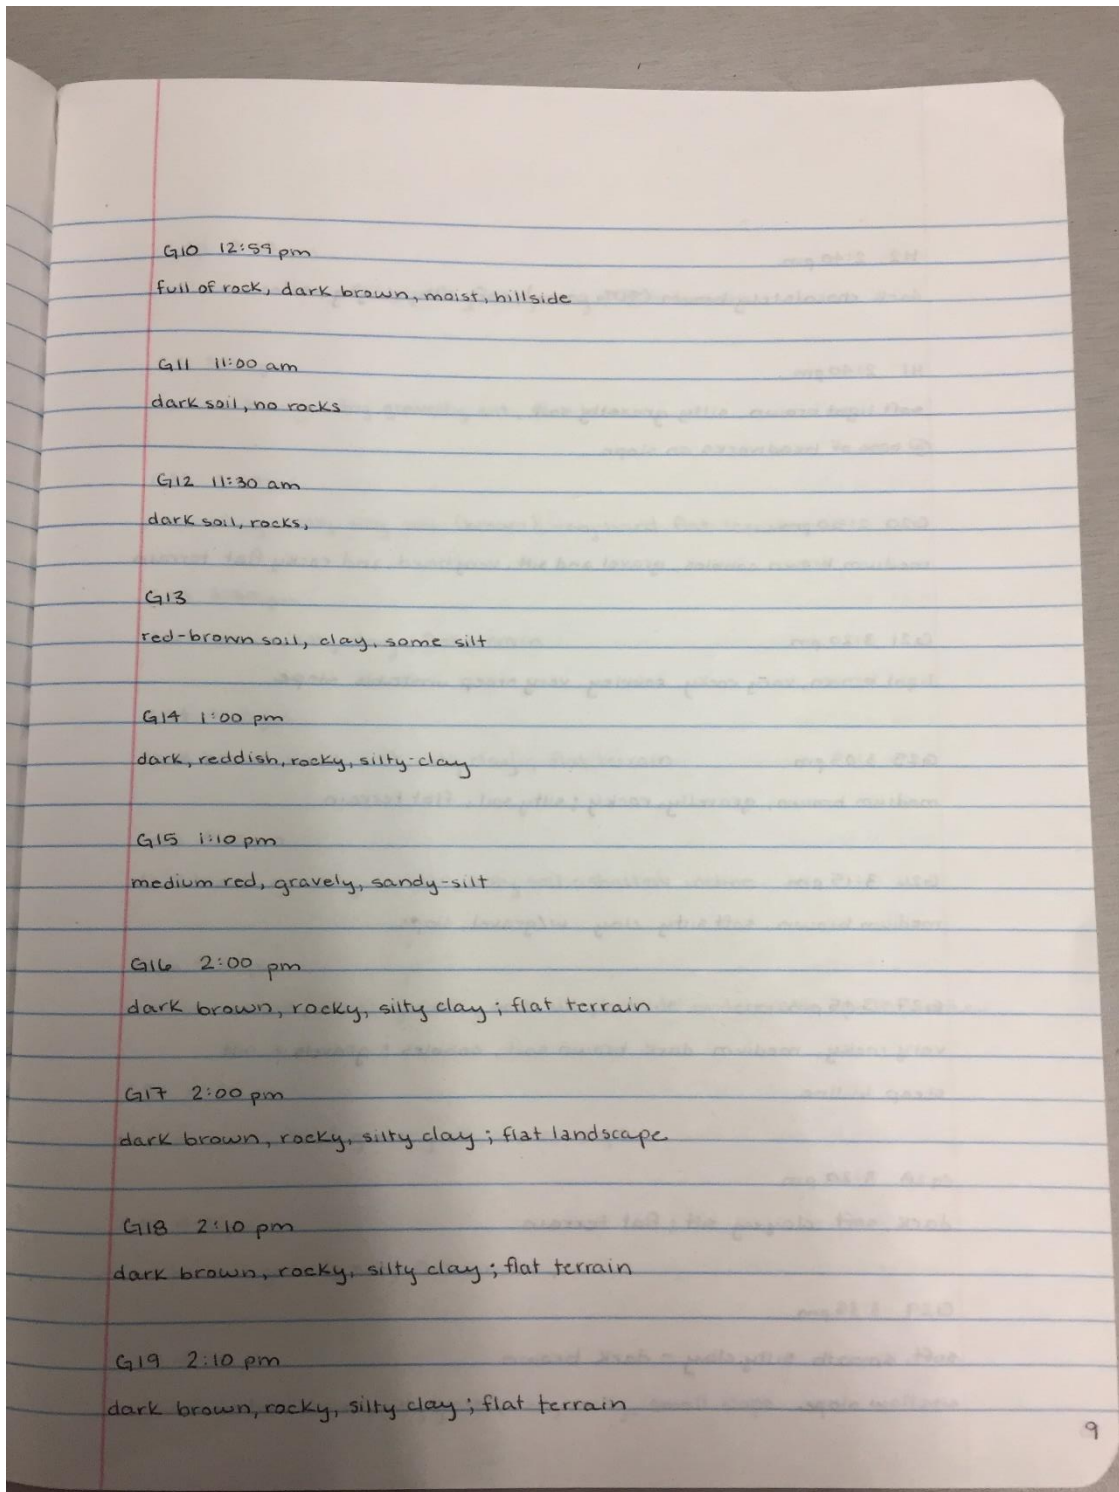 G10 12:59 pm
full of rock, dark brown, moist, hillside
G11 11:00 am
dark soil, no rocks
G12 11:30 am
dark soil, rocks,
G13
red-brown soil, clay, some silt
G14 1:00 pm
dark, reddish, rocky, silty-clay
G15 1:10 pm
medium red, gravely, sandy-silt
G16 2:00 pm
dark brown, rocky, silty clay; flat terrain
G17 2:00 pm
dark brown, rocky, silty clay; flat landscape
G18 2:10 pm
dark brown, rocky, silty clay; flat terrain
G19 2:10 pm
dark brown, rocky, silty clay; flat terrain
9